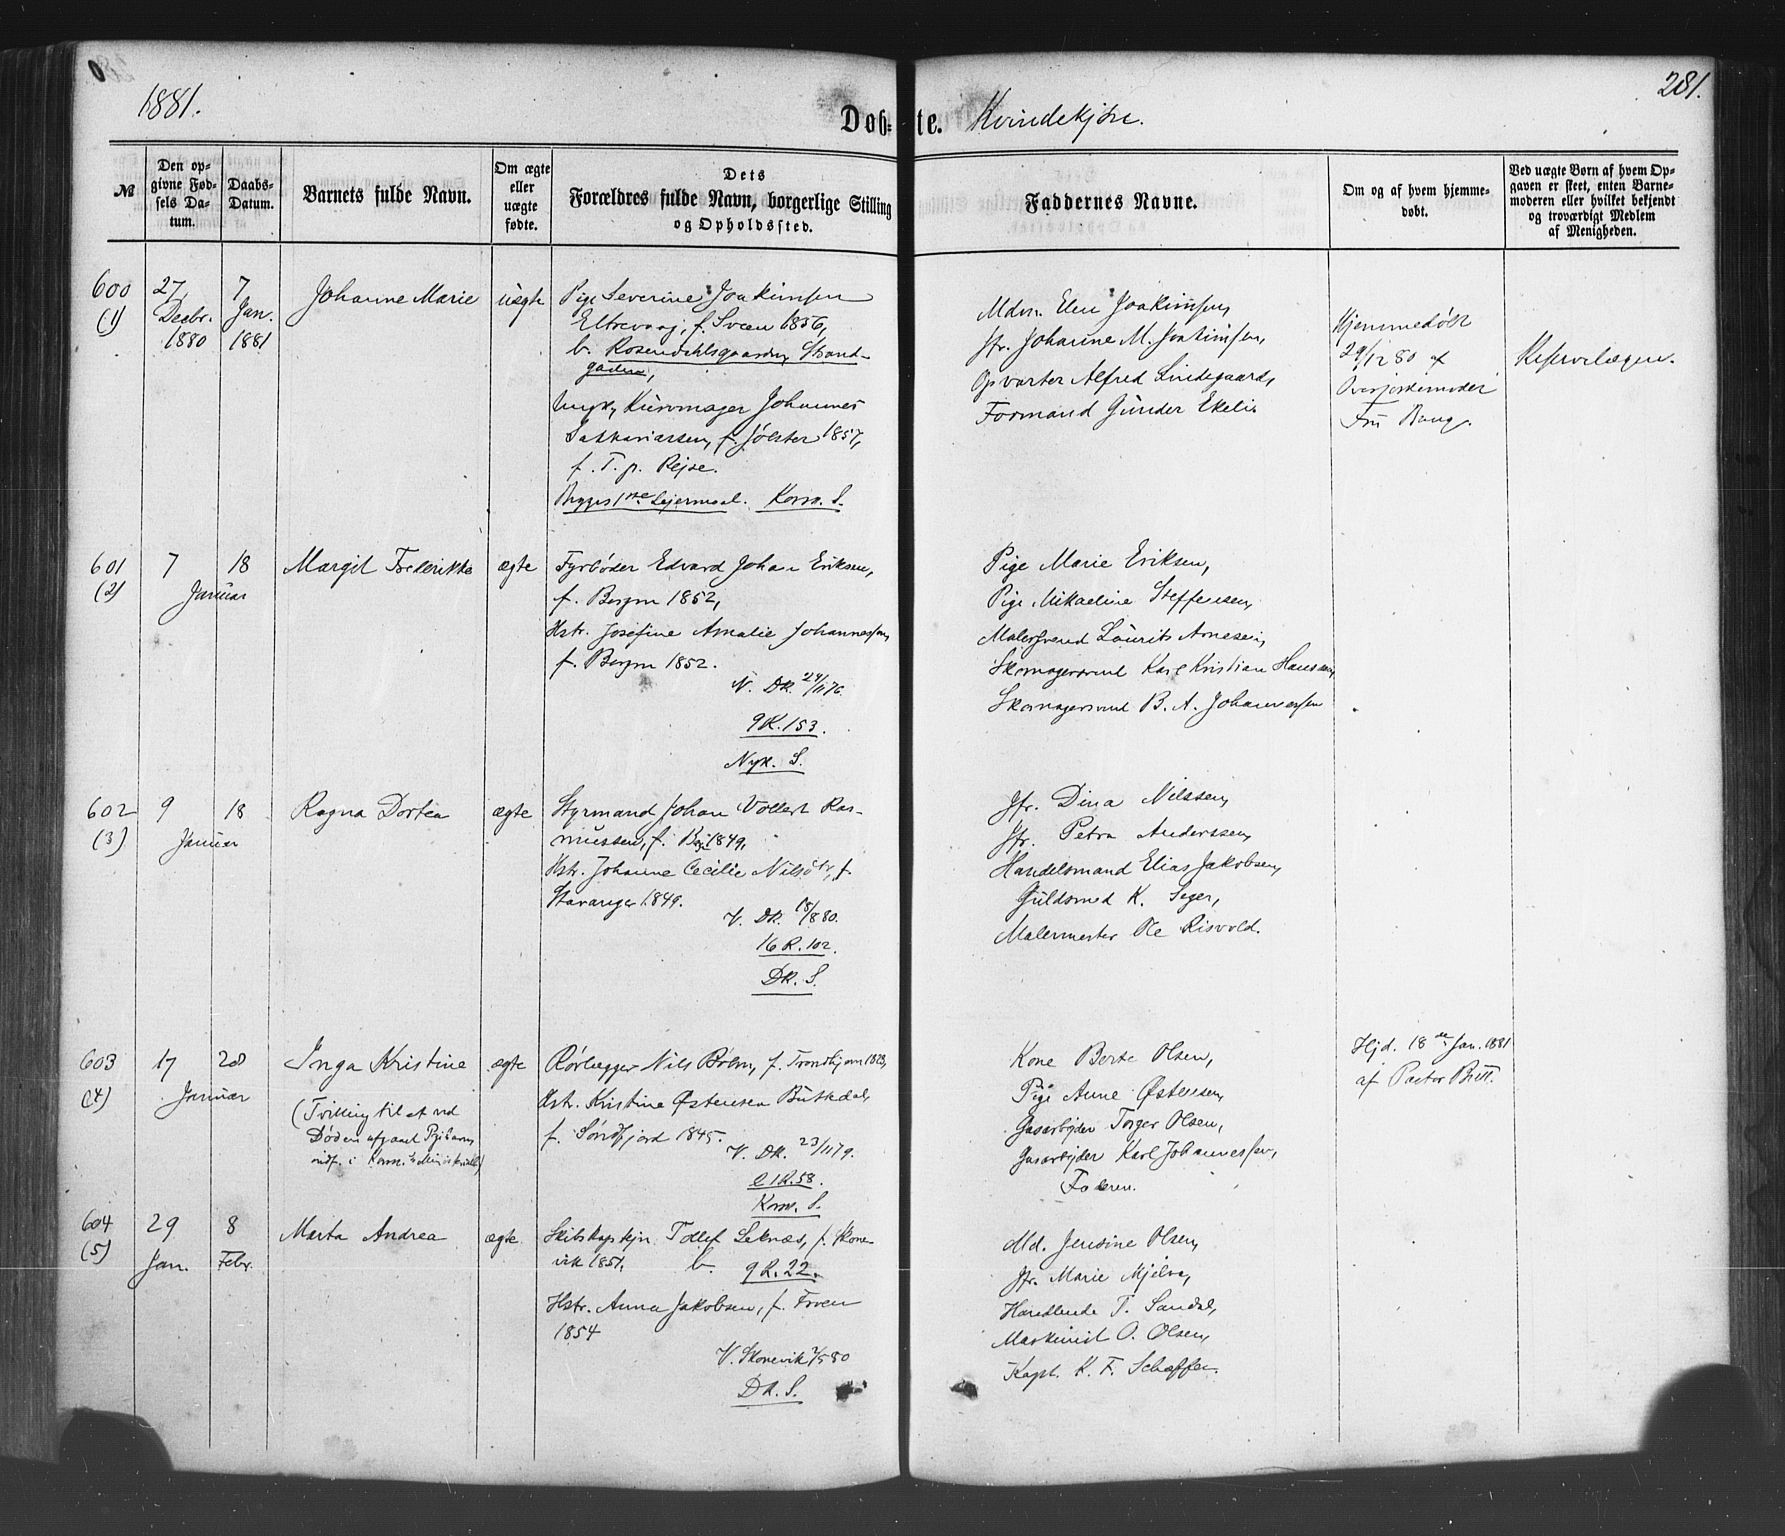 1881.
281.
Døbte. Kvindekjøn.
№
Den opgivne Fødsels Datum.
Daabs-Datum.
Barnets fulde Navn.
Om ægte eller uægte fødte.
Dets Forældres fulde Navn, borgerlige Stilling og Opholdssted.
Faddernes Navne.
Om og af hvem hjemmedøbt.
Ved uægte Børn af hvem Opgaven er skeet, enten Barnemoderen eller hvilket bekjendt og troværdigt Medlem af Menigheden.
600 27 7 Johanne Marie uægte Pige Severine Joakimsen
(1) Decbr. Jan. Eltrevaag, f. Sveen 1856,
1880 1881 b. Rosendahlsgaarden, Strand-
gaden,
Ungk, Kurvmager Johannes
Sakkariassen, f. Jølster 1857,
f. T. p. Rejse.
Begges 1ste Lejermaal. Korsk. S.
Mdm. Elen Joakimsen,
Jfr. Johanne M. Joakimsen,
Opvarter Alfred Lindegaard,
Formand Gunder Ekeli.
Hjemmedøbt
29/12 80 af
Overjordemoder
Fru Bang.
Reservelægen.
601 7 18 Margit Frederikke ægte Fyrbøder Edvard Johan Eriksen,
(2) Januar f. Bergen 1852,
Hstr. Josefine Amalie Johannessen,
f. Bergen 1852.
N. DK. 24/11 76.
9 K. 153.
Nyk. S.
Pige Marie Eriksen,
Pige Mikaeline Steffensen,
Malersvend Laurits Arnesen,
Skomagersvend Karl Kristian Hansen,
Skomagersvend B. A. Johannessen
602 9 18 Ragna Dortea ægte Styrmand Johan Vollert Ras-
(3) Januar mussen, f. Bgn 1849,
Hstr. Johanne Cecilie Nilsdtr, f.
Stavanger 1849.
V. DK. 18/8 80.
16 R. 102.
DK. S.
Jfr. Dina Nilssen,
Jfr. Petra Anderssen,
Handelsmand Elias Jakobsen,
Guldsmed K. Seger,
Malermester Ole Risvold.
603 17 28 Inga Kristine ægte Rørlægger Nils Bohn, f. Trondhjem
(4) Januar Hstr. Kristine Østensen
(Tvilling til et ved
Døden afgaaet Pigebarn
f. Søndfjord 1845.
V. DK. 23/11 79.
K. 58.
Kors. S.
Kone Berte Olsen,
Pige Anne Østensen,
Gasarbejder Torger Olsen,
Gasarbejder Karl Johannessen,
Faderen.
Hjd. 18de Jan. 1881
af Pastor Britt.
604 29 8 Marta Andrea ægte Skibskaptejn Tollef Leknæs, f. Skone-
(5) Jan. Febr. vik 1851, b. 9 R. 22.
Hstr. Anna Jakobsen, f. Froen
1854
V. Skonevik 2/5 80
DK. S.
Md. Jensine Olsen,
Jfr. Marie Mjelva,
Handlende T. Sandal,
Maskinist O. Olsen,
Kapt. K. F. Scheffer.